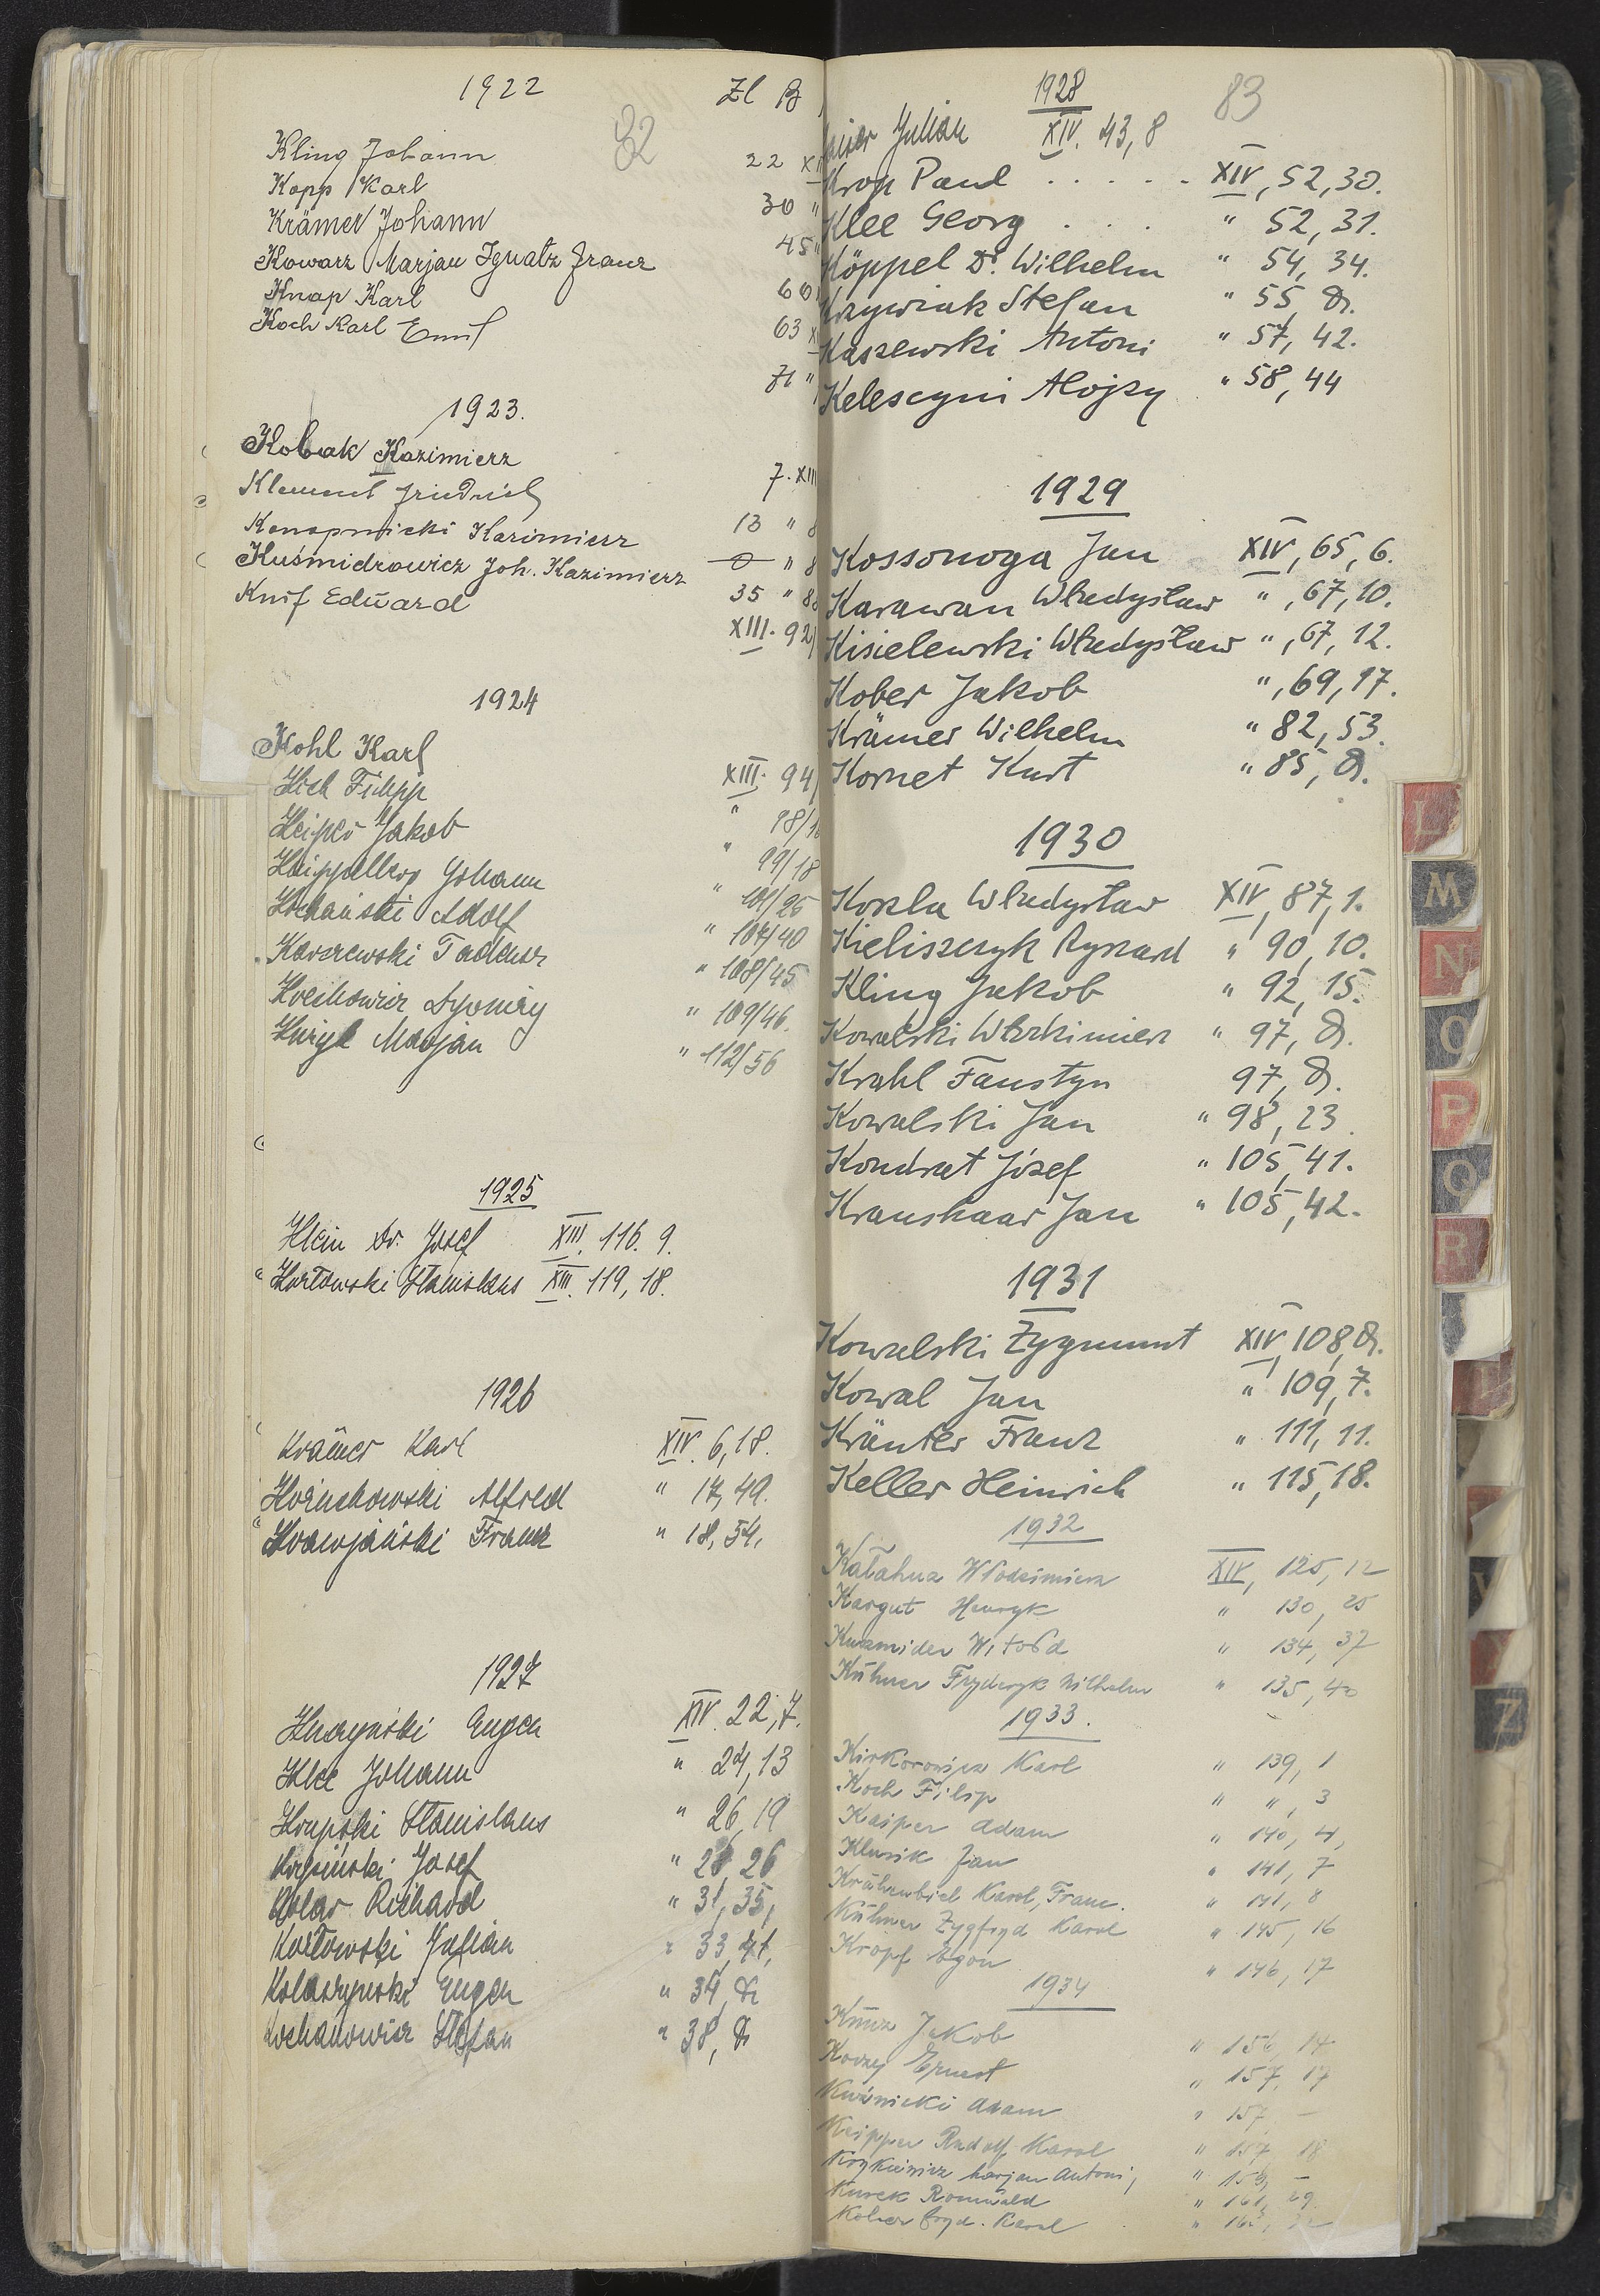 1922 Zl B
82
Kling Johann 22 XI
Kopp Karl 30 "
Krämer Johann 45 "
Kowarz Marjan Ignatz Franz 60
Knap Karl 63 X
Koch Karl Emil 71 "
1923.
Kobak Kazimierz 7. XIII
Klement Friedrich 13 " 8
Konopnicki Kazimierz 0 " 8
Kuśmidrowicz Joh. Kazimierz 35 " 8
Knif Edward XIII. 92
1924
Kohl Karl XIII. 94,
Filipp " 98/1
Jakob " 99/18
Johann " 101/25
Kochański Adolf " 107/40
Tadeusz " 108/45
" 109/46.
Marjan " 112/56
1925
Klein Dr. Josef XIII. 116. 9.
Kurłowski Stanislaus XIII. 119, 18.
1926
Krämer Karl XIV. 6,18.
Alfred " 17,49.
Franz " 18,54.
1927
Eugen XIV. 22,7.
Klee Johann " 24,13
Krupski Stanislaus " 26,19
Josef " 28 26
Richard " 31,35,
Julian " 33,41,
Eugen " 34,
Kochanowicz Stefan " 38,
1928
83
Julian XIV. 43,8
Krop Paul . . . . . XIV, 52, 30.
Klee Georg . . . . " 52, 31.
Köppel Dr. Wilhelm " 54, 34.
Krzywiak Stefan " 55,
Kaszewski Antoni " 57, 42.
Kelescyni Alojzy " 58, 44
1929
Kossonoga Jan XIV, 65, 6.
Karawan Władysław ", 67, 10.
Kisielewski Władysław ", 67, 12.
Kober Jakob ", 69, 17.
Krämer Wilhelm " 82, 53.
Kornet Kurt " 85,
1930
Kozla Władysław XIV, 87, 1.
Kieliszczyk Ryszard " 90, 10.
Kling Jakob " 92, 15.
Kowalski " 97,
Krahl Faustyn 97,
Kowalski Jan " 98, 23.
Kondrat Józef " 105, 41.
Kraushaar Jan " 105, 42.
1931
Kowalski Zygmunt XIV, 108,
Kowal Jan " 109, 7.
Kräuter Franz " 111, 11.
Keller Heinrich " 115, 18.
1932
Kałahua Włodzimierz XIV, 125, 12
Kargut Henryk " 130, 25
Witold " 134, 37
Kühner Fryderyk Wilhelm " 135, 40
1933.
Kirkorowicz Karl " 139, 1
Koch Filip " ", 3
Kaiper Adam " 140, 4,
Klusik Jan " 141, 7
Krähenbiel Karol, Franc. " 141, 8
Kühner Zygfryd Karol " 145, 16
Kropf Egon " 146, 17
1934
Kunz Jakob " 156, 14
Ernest " 157, 17
Kuźnicki Adam " 157, –
Keipper Rudolf Karol " 157, 18
Marjan Antoni, " 159, –
Kurek Romuald " 161, 29
Karol
L
M
N
O
P
Q
R
Z